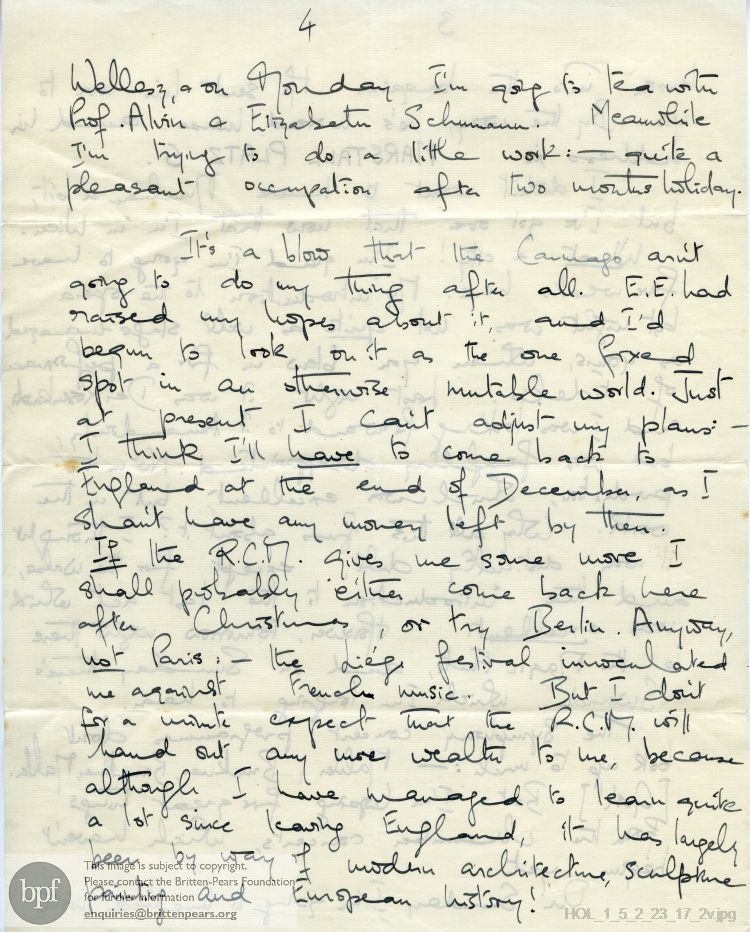 4
Wellesz, & on Monday I'm going to tea with
Prof. Alwin & Elizabeth Schumann. Meanwhile
I'm trying to do a little work: — quite a
pleasant occupation after two months holiday.
It's a blow that the Carnegie arn't
going to do my thing after all. E.E. had
raised my hopes about it, and I'd
begun to look on it as the one fixed
spot in an otherwise mutable world. Just
at present I can't adjust my plans: —
I think I'll have to come back to
England at the end of December, as I
shan't have any money left by then.
If the R.C.M. gives me some more I
shall probably either come back here
after Christmas, or try Berlin. Anyway,
not Paris: — the Liége festival innoculated
me against French music. But I don't
for a minute expect that the R.C.M. will
hand out any more wealth to me, because
although I have managed to learn quite
a lot since leaving England, it has largely
been by way of modern architecture, sculpture
painting and European history!
bpf
This image is subject to copyright.
Please contact the Britten-Pears Foundation
for further information
enquiries@brittenpears.org
HOL_1_5_2_23_17_2v.jpg